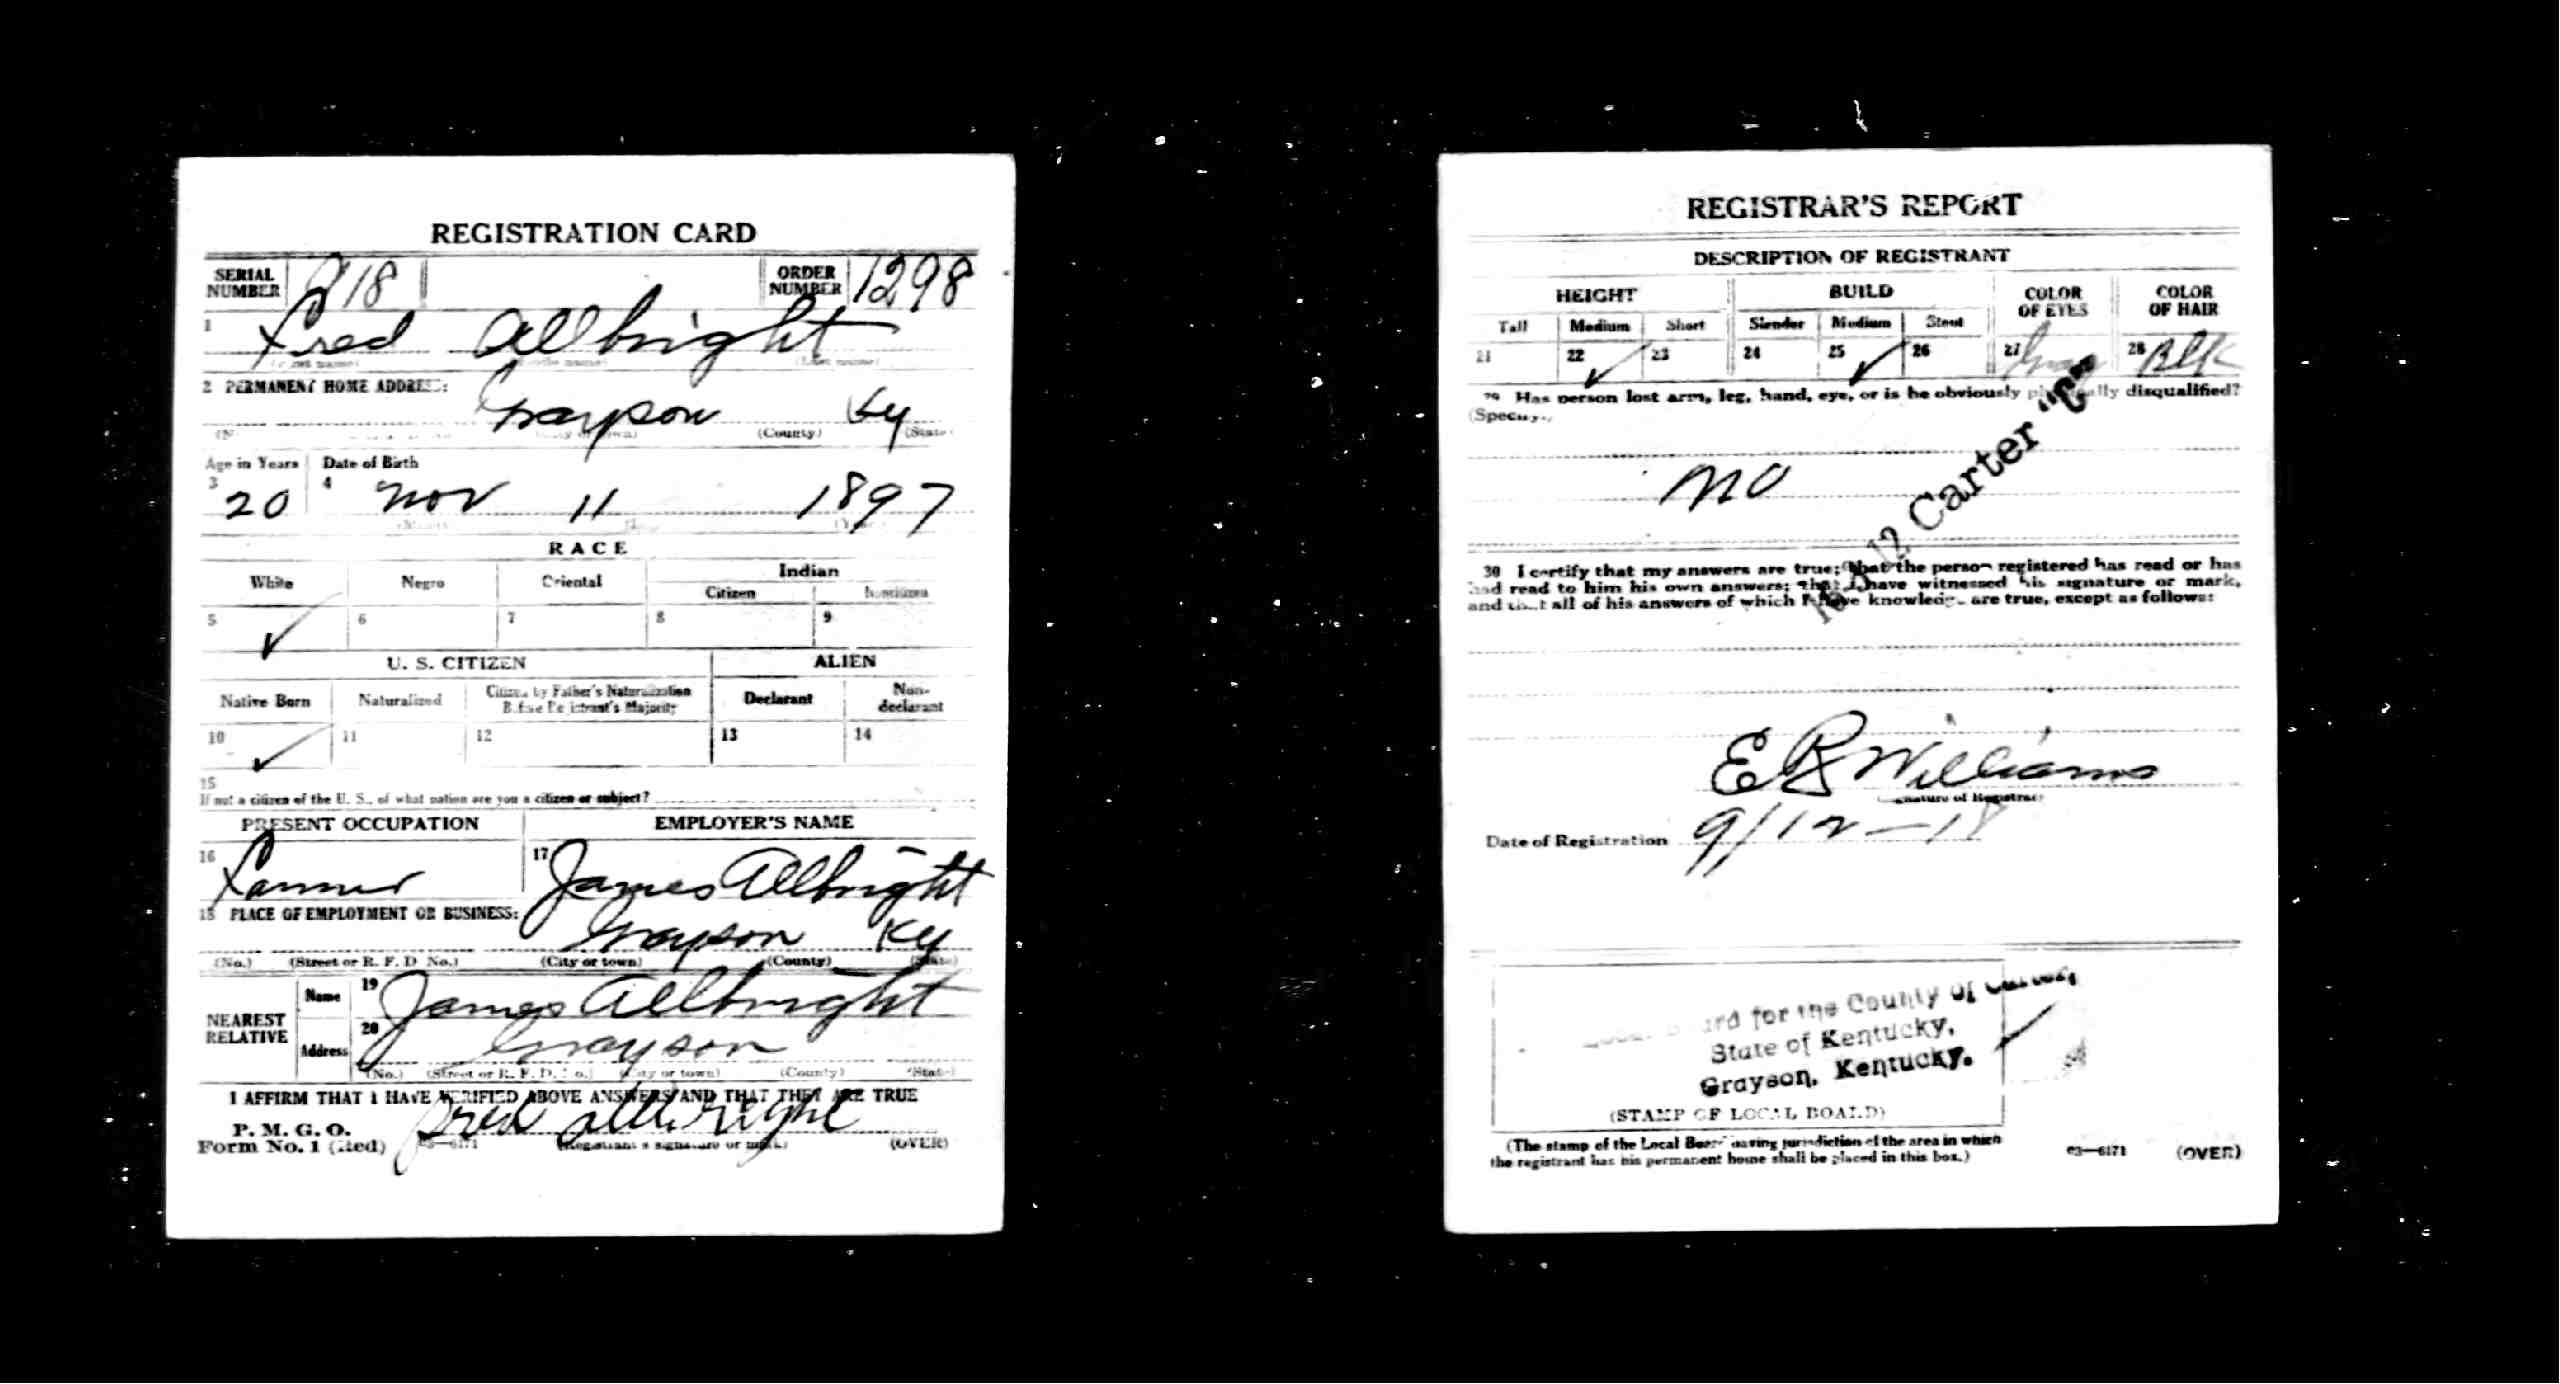 REGISTRATION CARD
SERIAL NUMBER 918 ORDER NUMBER 1298
1 Fred Allbright
2 PERMANENT HOME ADDRESS:
Grayson Ky
(County) (State)
Age in Years Date of Birth
3 20 4 Nov 11 1897
RACE
White Negro Oriental Indian
Citizen Noncitizen
5 ✓ 6 7 8 9
U. S. CITIZEN ALIEN
Native Born Naturalized Citizen by Father's Naturalization Before Registrant's Majority Declarant Non-declarant
10 ✓ 11 12 13 14
15
If not a citizen of the U. S., of what nation are you a citizen or subject?
PRESENT OCCUPATION EMPLOYER'S NAME
16 Farmer 17 James Allbright
18 PLACE OF EMPLOYMENT OR BUSINESS:
Grayson Ky
(No.) (Street or R. F. D. No.) (City or town) (County) (State)
NEAREST RELATIVE
Name 19 James Allbright
Address 20 Grayson
(No.) (Street or R. F. D. No.) (City or town) (County) (State)
I AFFIRM THAT I HAVE VERIFIED ABOVE ANSWERS AND THAT THEY ARE TRUE
P. M. G. O.
Form No. 1 (Red) Fred Allbright
(Registrant's signature or mark) (OVER)
REGISTRAR'S REPORT
DESCRIPTION OF REGISTRANT
HEIGHT BUILD COLOR OF EYES COLOR OF HAIR
Tall Medium Short Slender Medium Stout
21 22 ✓ 23 24 25 ✓ 26 27 28 Blk
29 Has person lost arm, leg, hand, eye, or is he obviously physically disqualified?
(Specify.)
No
12 Carter "C"
30 I certify that my answers are true; that the person registered has read or has
had read to him his own answers; that I have witnessed his signature or mark,
and that all of his answers of which I have knowledge are true, except as follows:
E B Williams
(Signature of Registrar)
Date of Registration 9/12-18
Local Board for the County of Carter,
State of Kentucky,
Grayson, Kentucky.
(STAMP OF LOCAL BOARD)
(The stamp of the Local Board having jurisdiction of the area in which
the registrant has his permanent home shall be placed in this box.)
03—6171 (OVER)